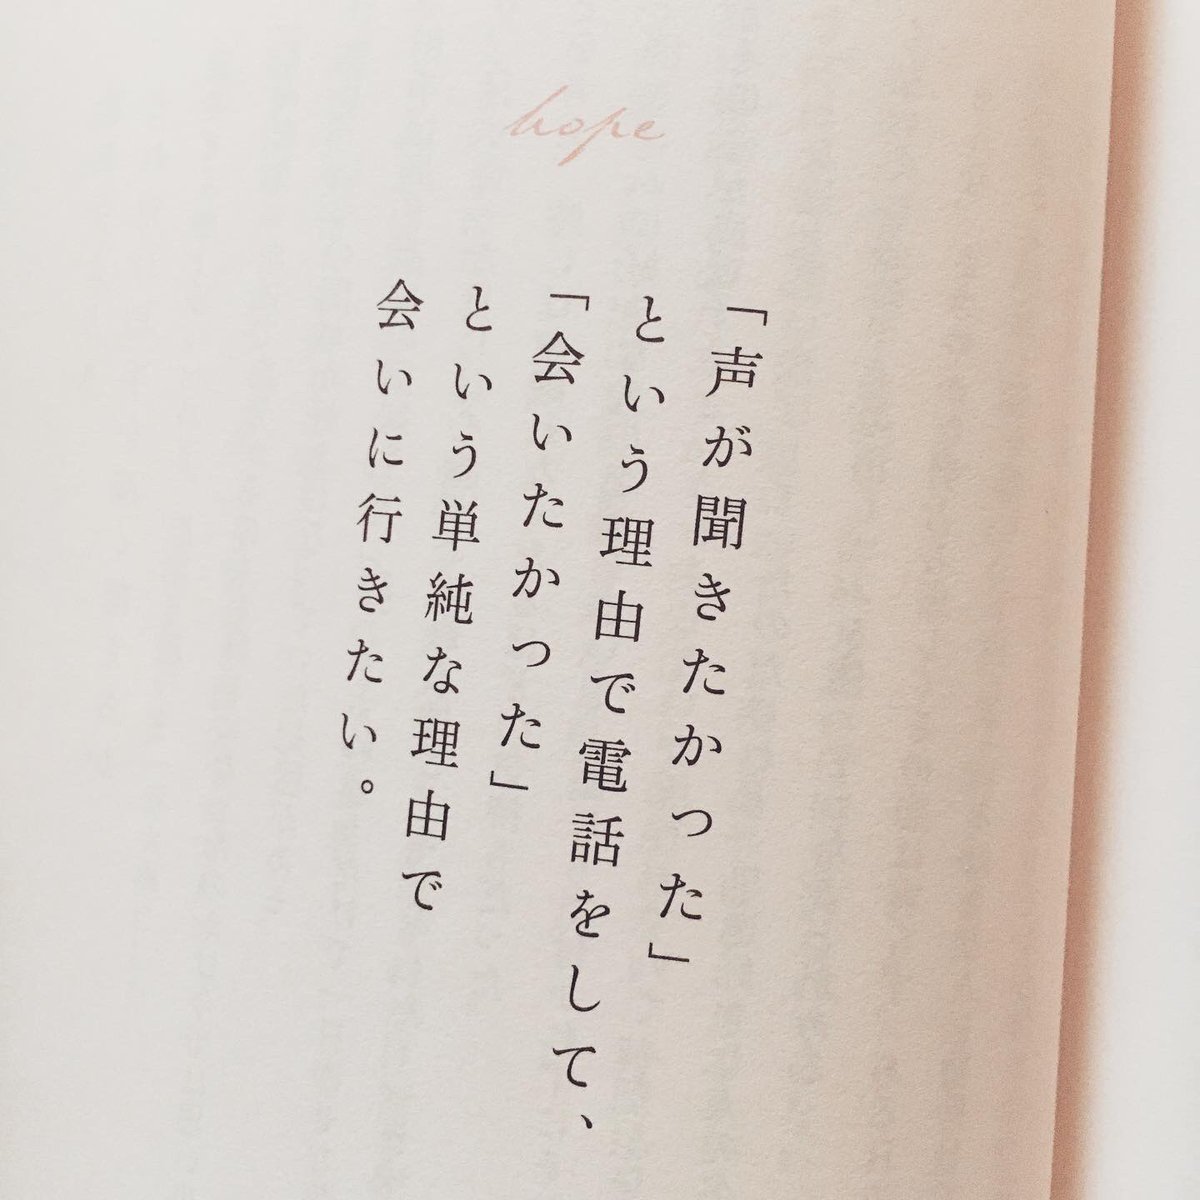 hope
「声が聞きたかった」
という理由で電話をして、
「会いたかった」
という単純な理由で
会いに行きたい。